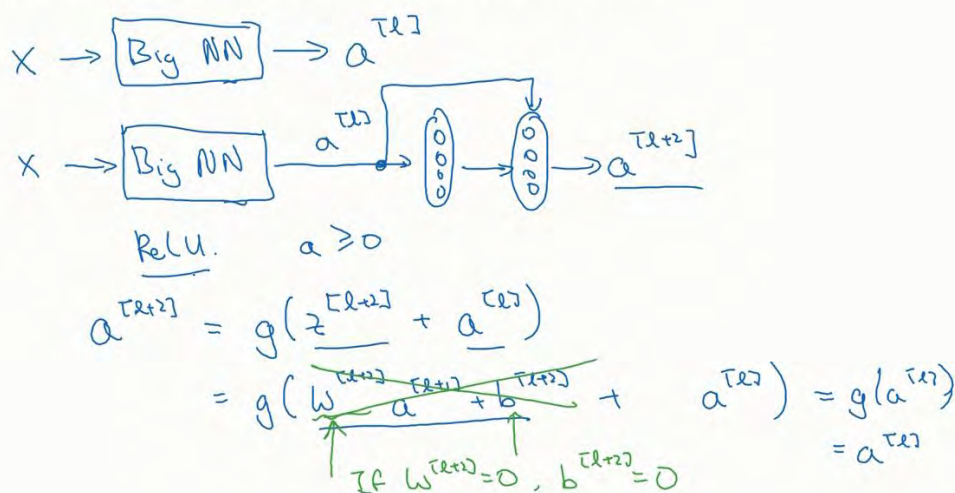 X → Big NN → a^[l]
X → Big NN a^[l] → a^[l+2]
ReLU. a ≥ 0
a^[l+2] = g(z^[l+2] + a^[l])
= g(W^[l+2] a^[l+1] + b^[l+2] + a^[l]) = g(a^[l])
= a^[l]
If W^[l+2]=0, b^[l+2]=0